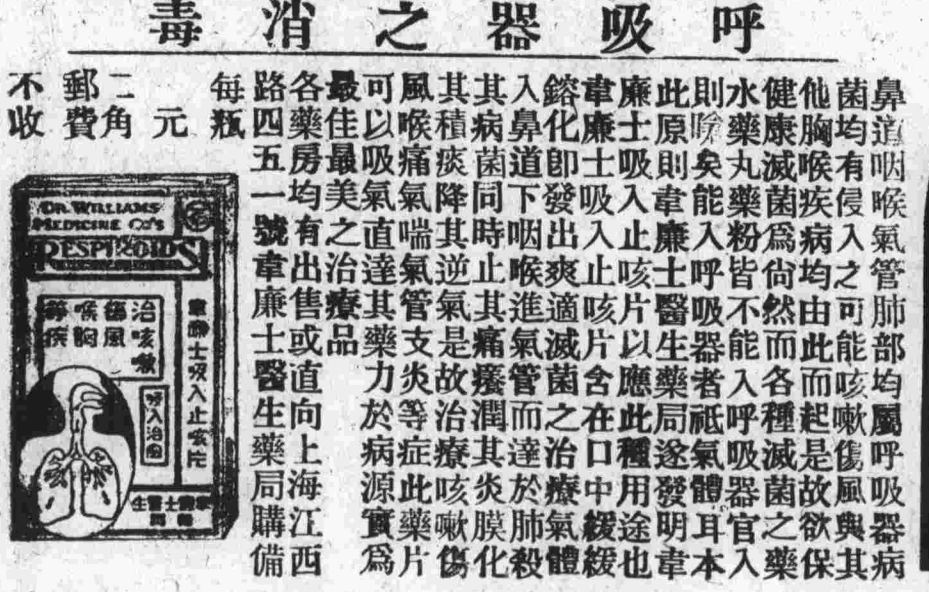 呼吸器之消毒
鼻道咽喉氣管肺部均屬呼吸器病
菌均有侵入之可能咳嗽傷風與其
他胸喉疾病均由此而起是故欲保
健康滅菌爲尚然而各種滅菌之藥
水藥丸藥粉皆不能入呼吸器官入
則險矣能入呼吸器者祇氣體耳本
此原則韋廉士醫生藥局遂發明韋
廉士吸入止咳片以應此種用途也
韋廉士吸入止咳片含在口中緩緩
鎔化卽發出爽適滅菌之治療氣體
入鼻道下咽喉進氣管而達於肺殺
其病菌同時止其痛癢潤其炎膜化
其積痰降其逆氣是故治療咳嗽傷
風喉痛氣喘氣管支炎等症此藥片
可以吸氣直達其藥力於病源實爲
最佳最美之治療品
各藥房均有出售或直向上海江西
路四五一號韋廉士醫生藥局購備
每瓶
元
二角
郵費
不收
DR. WILLIAMS
MEDICINE CO'S
RESPIROIDS
韋廉士吸入止咳片
治咳嗽
傷風
喉胸
等疾
吸入治